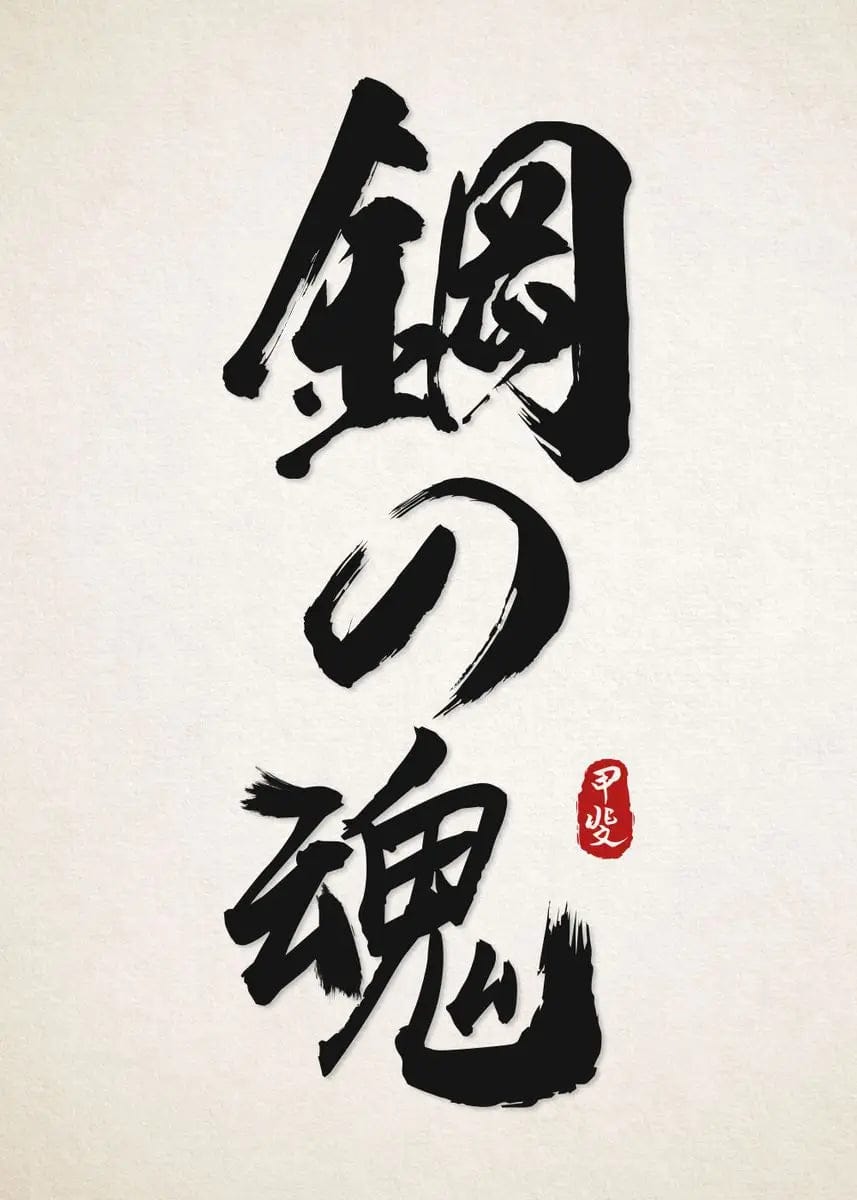 鋼の魂
甲斐